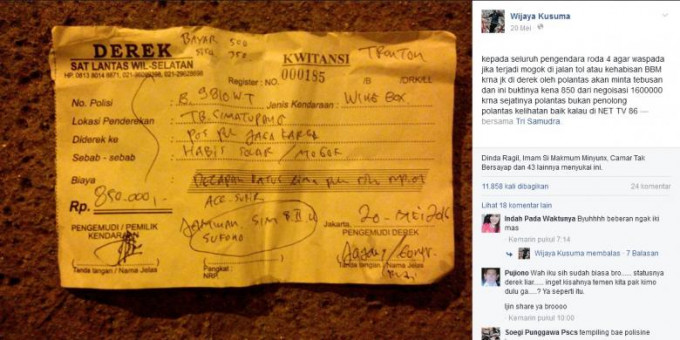 DEREK
SAT LANTAS WIL-SELATAN
HP. 0813 8014 9871, 021-36269298, 021-29628698
BAYAR 500
KWITANSI
TRONTON
Register : NO. 000185 /B /DRK/LL
No. Polisi B. 9810 WT Jenis Kendaraan : WING BOX.
Lokasi Penderekan : TB. SIMATUPANG
Diderek ke :
Sebab - sebab : HABIS SOLAR / MOGOK
Biaya :
Rp. 850.000,-
JAMINAN SIM B II U
Jakarta, 20 - MEI 2016
PENGEMUDI / PEMILIK KENDARAAN
PENGEMUDI DEREK
Tanda tangan / Nama Jelas
Pangkat :
NRP.
Tanda tangan / Nama Jelas
Wijaya Kusuma
20 Mei
kepada seluruh pengendara roda 4 agar waspada
jika terjadi mogok di jalan tol atau kehabisan BBM
krna jk di derek oleh polantas akan minta tebusan
dan ini buktinya kena 850 dari negoisasi 1600000
krna sejatinya polantas bukan penolong
polantas kelihatan baik kalau di NET TV 86 —
bersama Tri Samudra.
Dinda Ragil, Imam Si Makmum Minyunx, Camar Tak
Bersayap dan 43 lainnya menyukai ini.
11.958 kali dibagikan
24 komentar
Lihat 18 komentar lain
Indah Pada Waktunya Byuhhhh beberan ngak iki
mas
Kemarin pukul 7:14
Wijaya Kusuma membalas · 7 Balasan
Pujiono Wah iku sih sudah biasa bro...... statusnya
derek liar..... inget kisahnya temen kita pak kimo
dulu ga....? Ya seperti itu.
Ijin share ya broooo
Kemarin pukul 10:00
Soegi Punggawa Pscs tempiling bae polisine